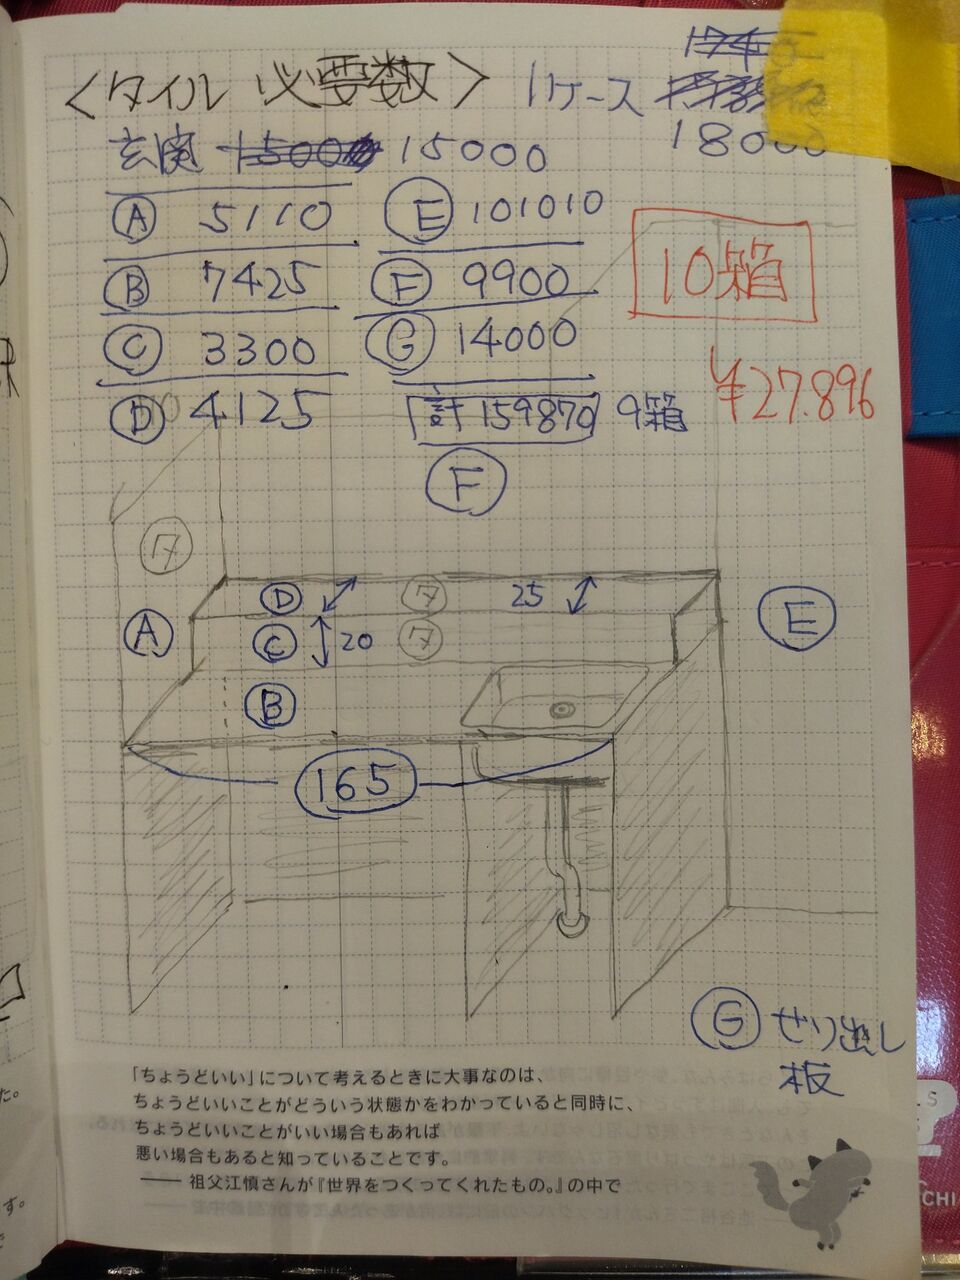 〈タイル 必要数〉 1ケース
18000
玄関 15000
Ⓐ 5110
Ⓑ 7425
Ⓒ 3300
Ⓓ 4125
Ⓔ 101010
Ⓕ 9900
Ⓖ 14000
計 159870 9箱
10箱
¥27.896
Ⓕ
タ
Ⓓ タ 25
Ⓐ Ⓒ 20 タ Ⓔ
Ⓑ
165
Ⓖ せり出し
板
「ちょうどいい」について考えるときに大事なのは、
ちょうどいいことがどういう状態かをわかっていると同時に、
ちょうどいいことがいい場合もあれば
悪い場合もあると知っていることです。
—— 祖父江慎さんが『世界をつくってくれたもの。』の中で
た。
す。